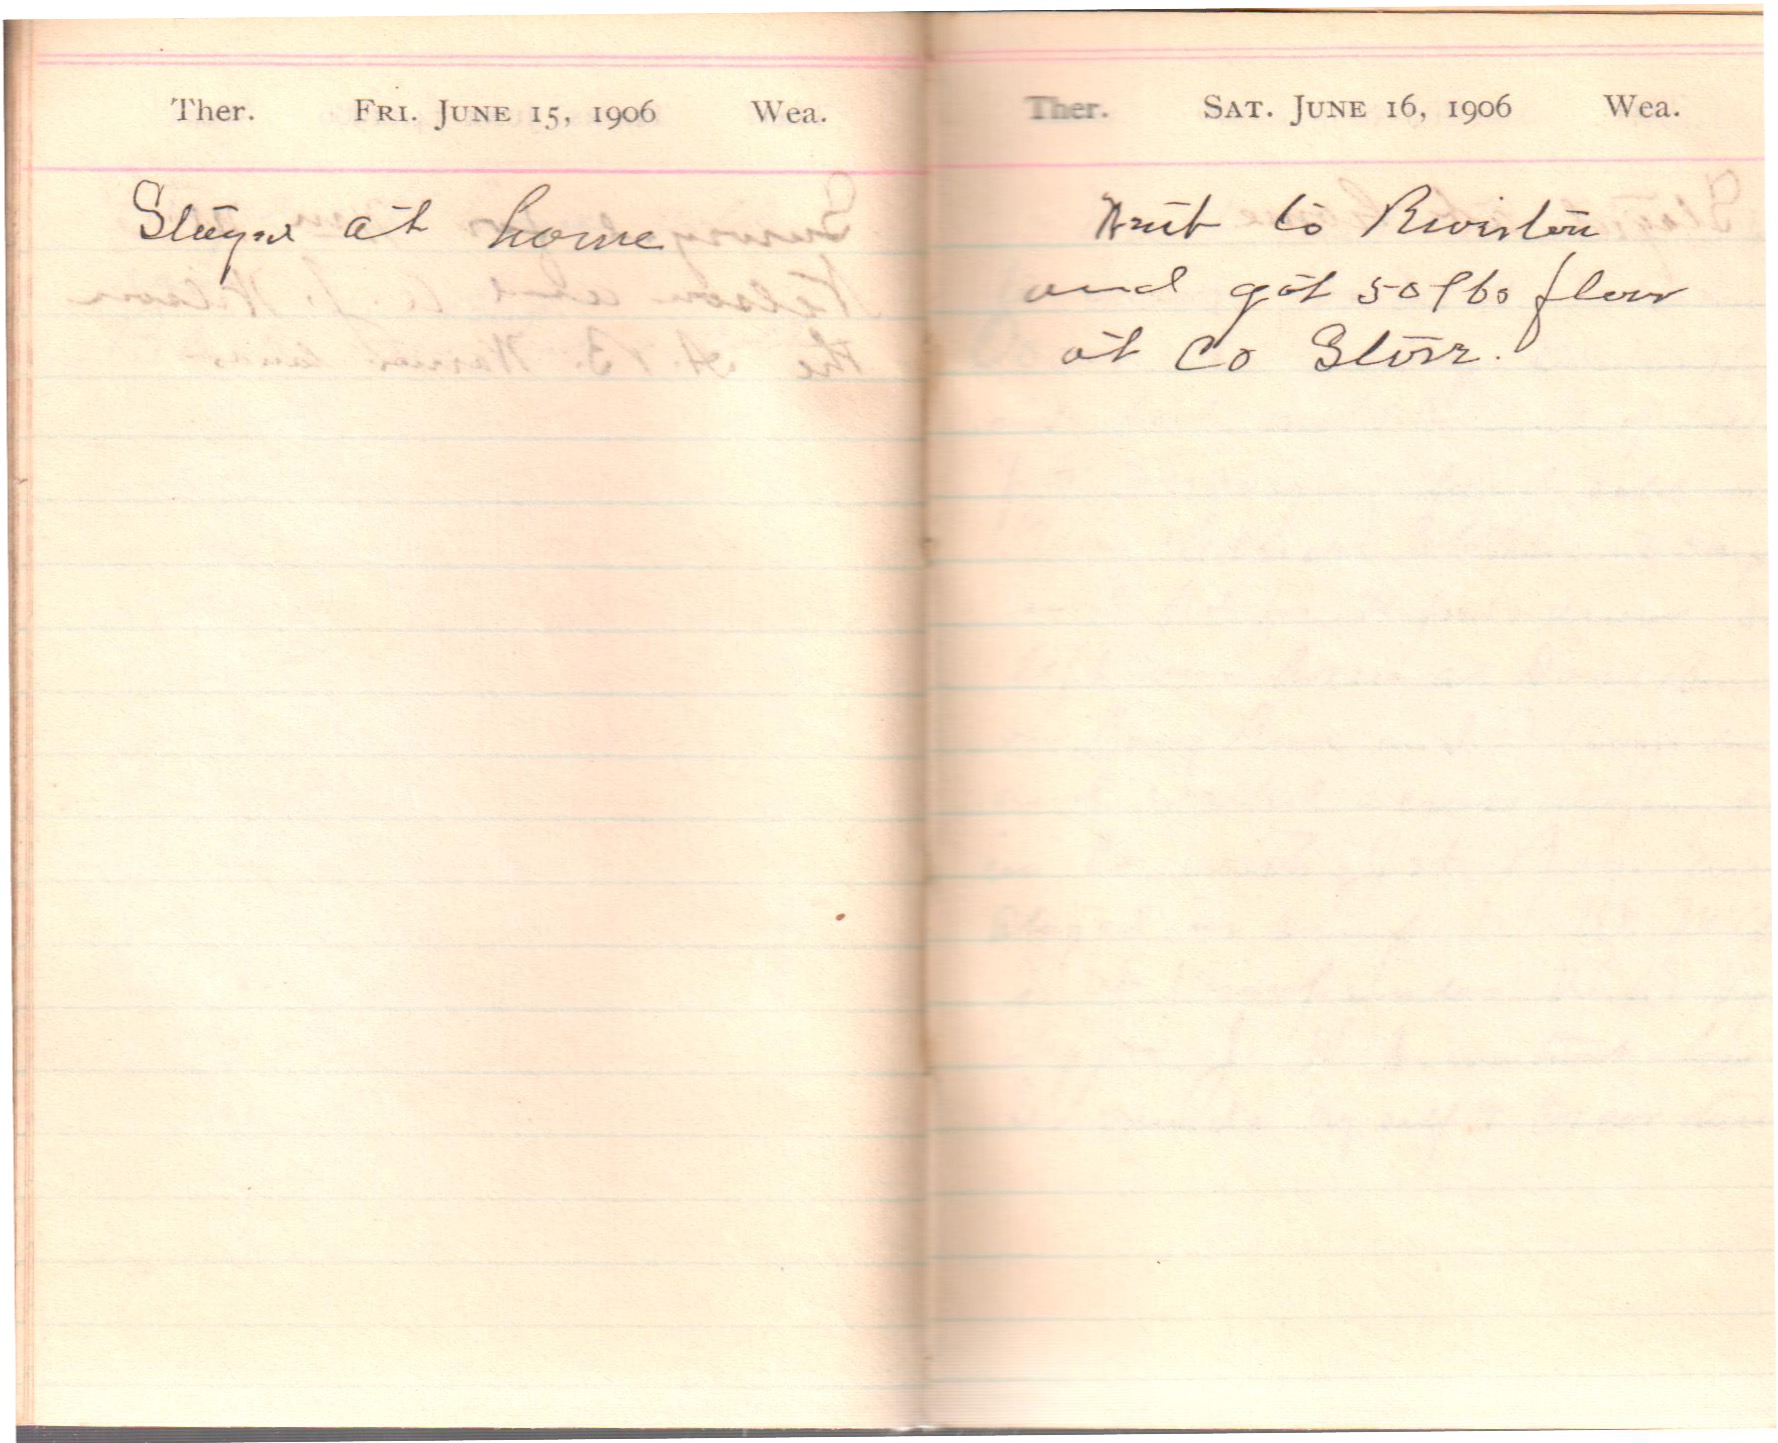 Ther. FRI. JUNE 15, 1906 Wea.
Stayed at home
Ther. SAT. JUNE 16, 1906 Wea.
Went to Riverton
and got 50 lbs flour
at Co Store.